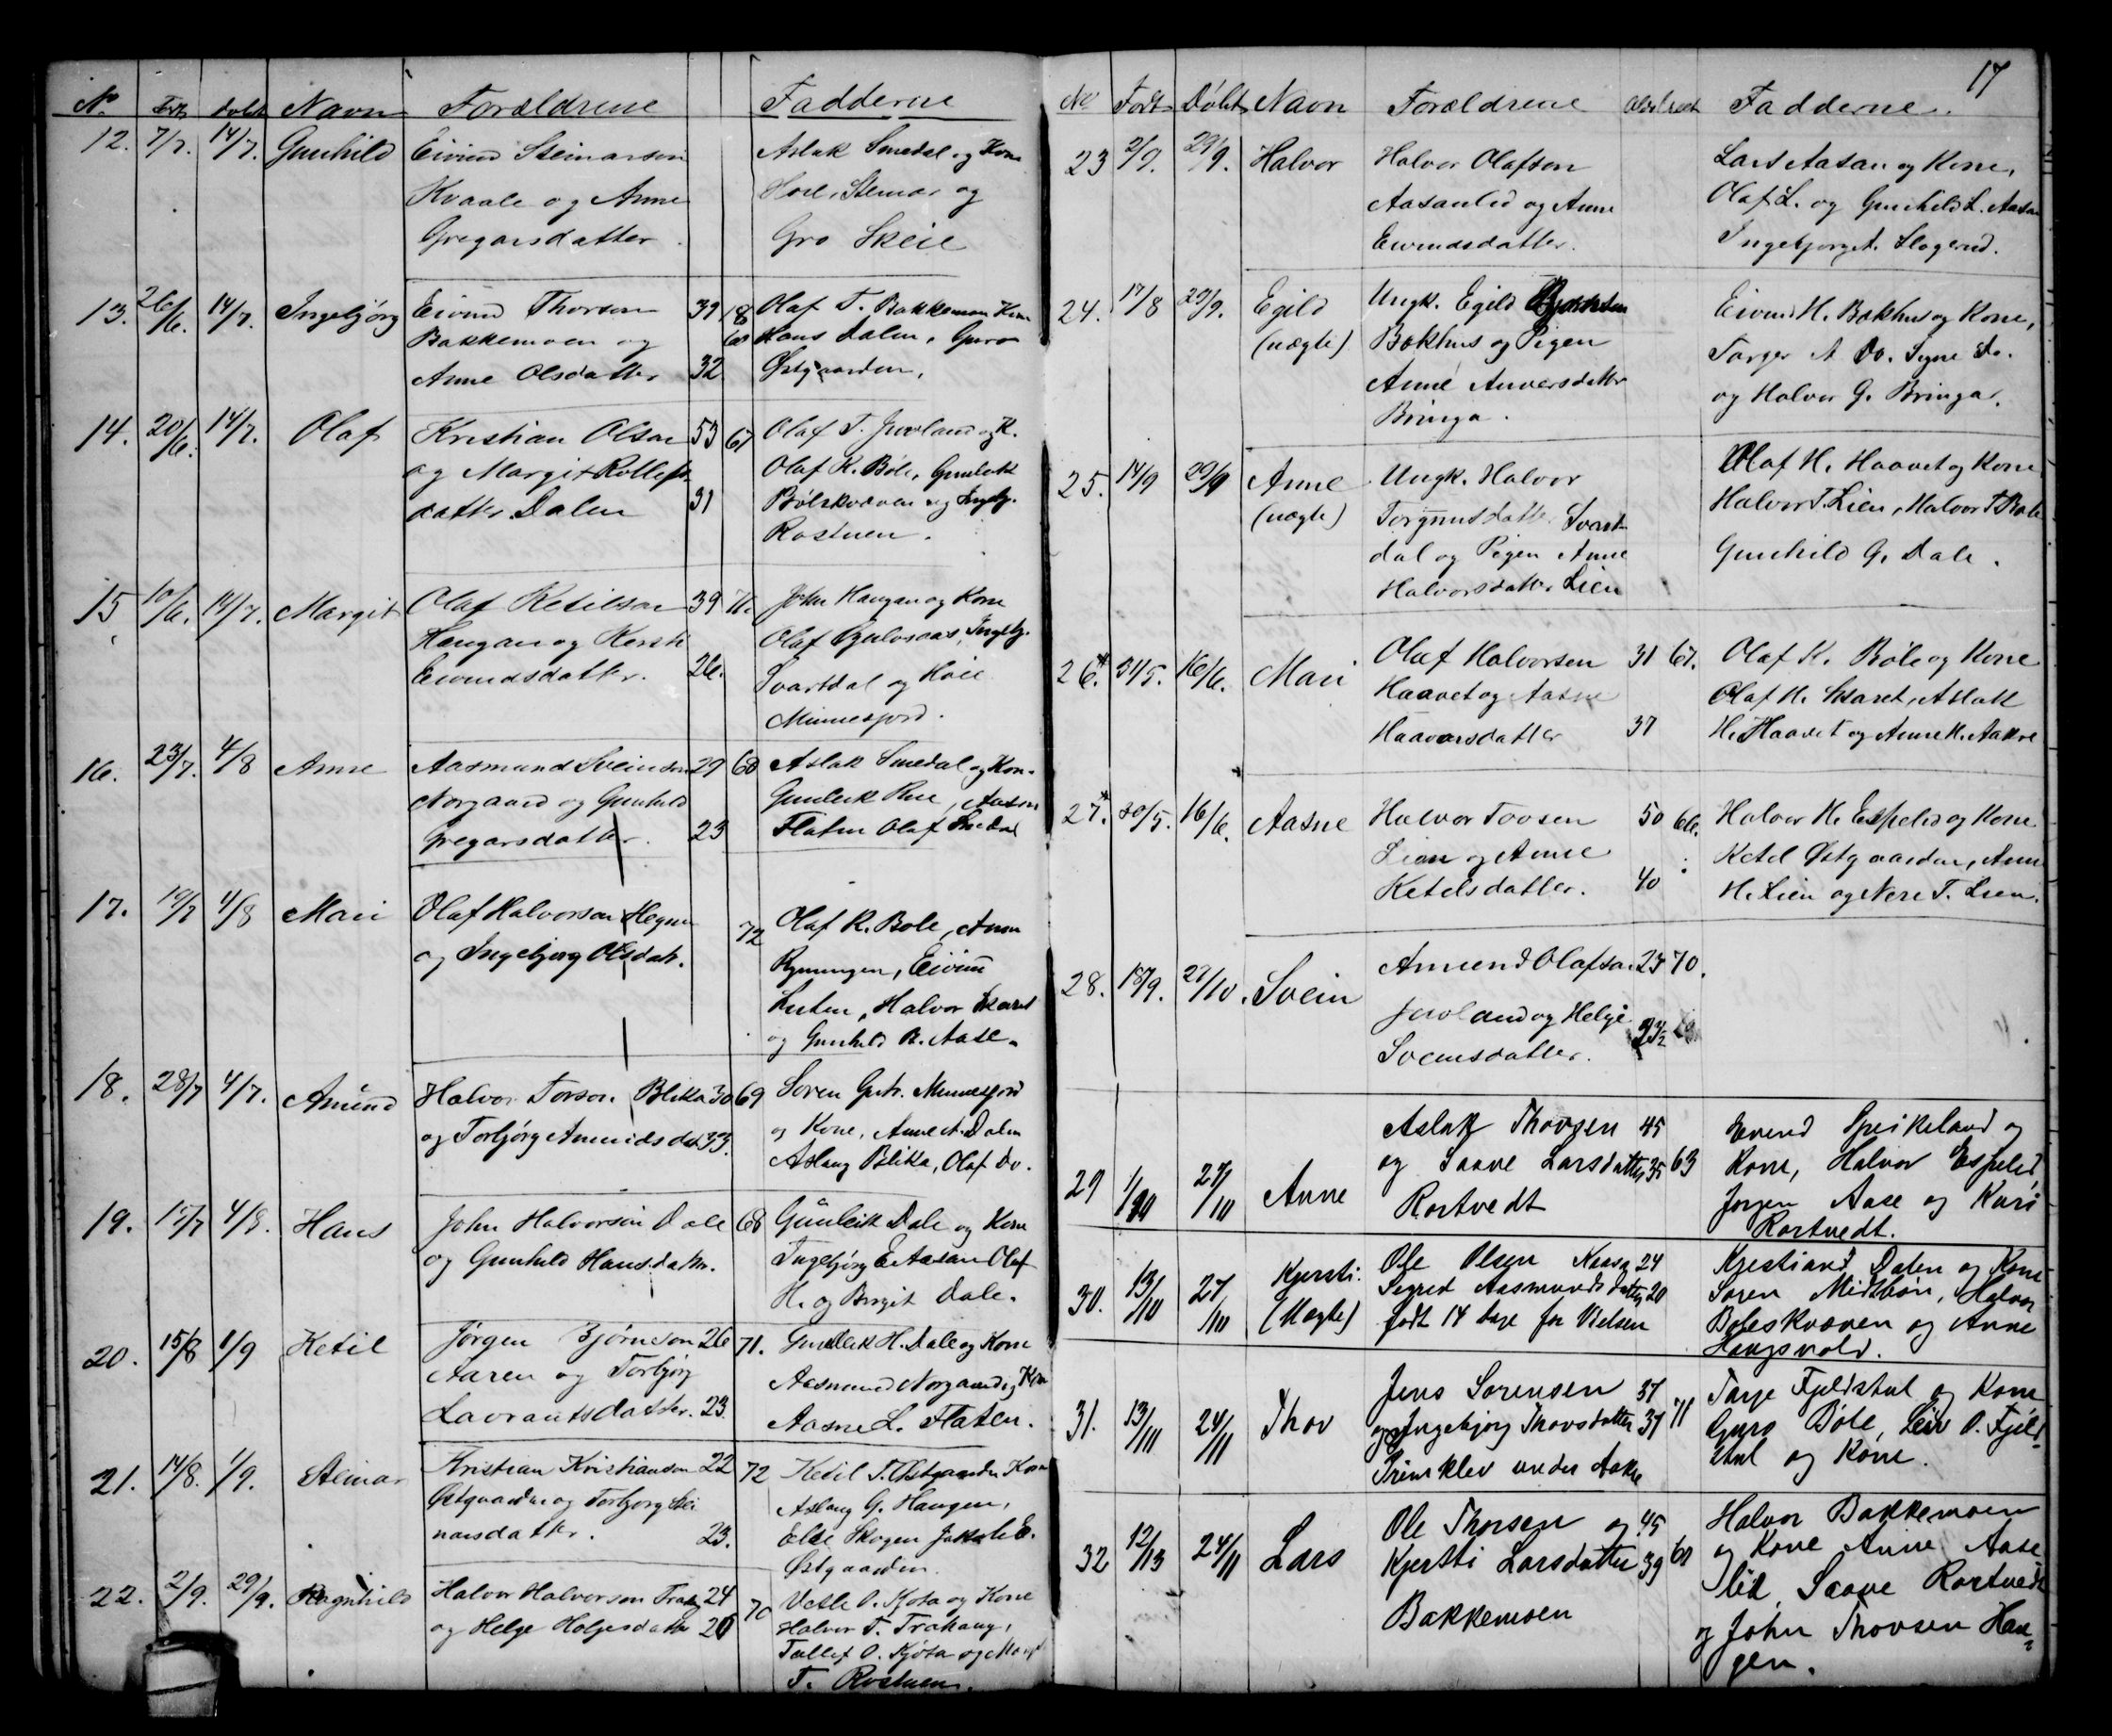 No Født Døbt Navn Forældrene Fadderne
12. 7/7. 14/7. Gunhild Eivind Steinarson Aslak Smedal og Kone
Kvaale og Anne Steinar og
Gregarsdatter. Gro Skeie
13. 26/6. 14/7. Ingebjørg Eivind Thorson 39 68 Olaf T. Bakkemoen Kone
Bakkemoen og Hans Dalen, Guro
Anne Olsdatter 32 Østgaarden.
14. 20/6. 14/7. Olaf Kristian Olson 53 67 Olaf T. Juvland og K.
og Margit Rollefs- Olaf K. Bøle, Gunleik
datter Dalen 31 Bøleskvæven og Ingebj.
Rostuen.
15. 10/6. 14/7. Margit Olaf Ketilson 39 71. John Haugan og Kone
Haugan og Kersti Olaf Ingebj.
Eivindsdatter. 26. Svartdal og
Minnesjord.
16. 23/7. 4/8 Anne Aasmund Sveinson 29 68 Aslak Smedal og Kone
Norgaard og Gunhild Gunleik Rue, Aasne
Gregarsdatter. 23 Flaten Olaf Smedal
17. 4/8 Mari Olaf Halvorson Hegna 72 Olaf K. Bøle, Anne
og Ingebjørg Olsdatr. Rynningen, Eivind
Luten, Halvor Skaret
og Gunhild B. Aase.
18. 28/7 4/7. Amund Halvor Torson Blika 30 69 Søren Gutr. Minnesjord
og Torbjørg Amundsdat. 33. og Kone, Anne A. Dalen
Aslaug Blika, Olaf Do.
19. 4/8. Hans John Halvorson Dale 68 Gunleik Dale og Kone
og Gunhild Hansdatter. Ingebjørg E. Aasan Olaf
H. og Birgit Dale.
20. 15/8 1/9 Ketil Jørgen Bjørnson 26 71. Gunleik H. Dale og Kone
Aaren og Torbjørg Aasmund Norgaard og Kone
Lavrantsdatter. 23. Aasne L. Flaten.
21. 14/8. 1/9. Steinar Kristian Kristianson 22 72 Ketil T. Østgaarden Kone
Østgaarden og Torbjørg Stei Aslaug G. Haugen,
narsdatter. 23. Else Skogen Jakob E.
Østgaarden.
22. 2/9. 29/9. Ragnhild Halvor Halvorson 24 70 Vetle O. Kjøta og Kone
og Helge Holjesdatter 20 Halvor T. Trahaug,
Tallef O. Kjøta og Margit
T. Rostuen.
17
No Født Døbt Navn Forældrene Fadderne.
23 2/9. 29/9. Halvor Halvor Olafson Lars Aasan og Kone,
Aasanlid og Anne Olaf L. og Gunhild L. Aasan
Eivindsdatter. Ingebjørg Slogerud.
24. 17/8 29/9. Egild Ungk. Egild Eivind H. Bakhus og Kone,
(uægte) Bakhus og Pigen Targer A. Do. Signe Do.
Anne Anversdatter og Halvor G. Bringa.
Bringa.
25. 14/9 29/9 Anne Ungk. Halvor Olaf H. Haavet og Kone
(uægte) Torgrimsdatter Svart- Halvor T. Lien, Halvor T. Bøle
dal og Pigen Anne Gunhild G. Dale.
Halvorsdatter Lien
26. 31/5. 16/6. Mari Olaf Halvorsen 31 67. Olaf K. Bøle og Kone
Haavet og Aasne Olaf H. Skaret, Aslak
Haavarsdatter 37 H. Haavet og Anne H. Aakre
27. 30/5. 16/6. Aasne Halvor Tovsen 50 66. Halvor H. Espelid og Kone
Lien og Anne Ketil Østgaarden, Anne
Ketilsdatter. 40 H. Lien og Neri T. Lien.
28. 18/9. 27/10. Svein Amund Olafson 23 70.
Juvland og Helge
Sveinsdatter.
29 27/10 Anne Aslak Thovsen 45 63 Evend Speikeland og
og Saave Larsdatter 35 Kone, Halvor Espelid
Rortvedt Jørgen Aase og Kari
Rortvedt.
30. 13/10 27/10 Kjersti. Ole Olsen Kaasa 24 Kjestiand Dalen og Kone
(Uægte) Segred Aasmundsdatter 20 Søren Midtbøn, Halvor
født 14 dage før Vielsen Bøleskvæven og Anne
Haugsvold.
31. 13/11 24/11 Thov Jens Sørensen 37 71 Tarje Fjeldstul og Kone
og Ingebjørg Thovsdatter 37 Guro Bøle, Leiv O. Fjeld-
Primklev under Aakre stul og Kone.
32 12/13 24/11 Lars Ole Thorsen og 45 Halvor Bakkemoen
Kjersti Larsdatter 39 og Kone Anne Aase
Bakkemoen lid, Saave Rortvedt
og John Thovsen Hau-
gen.